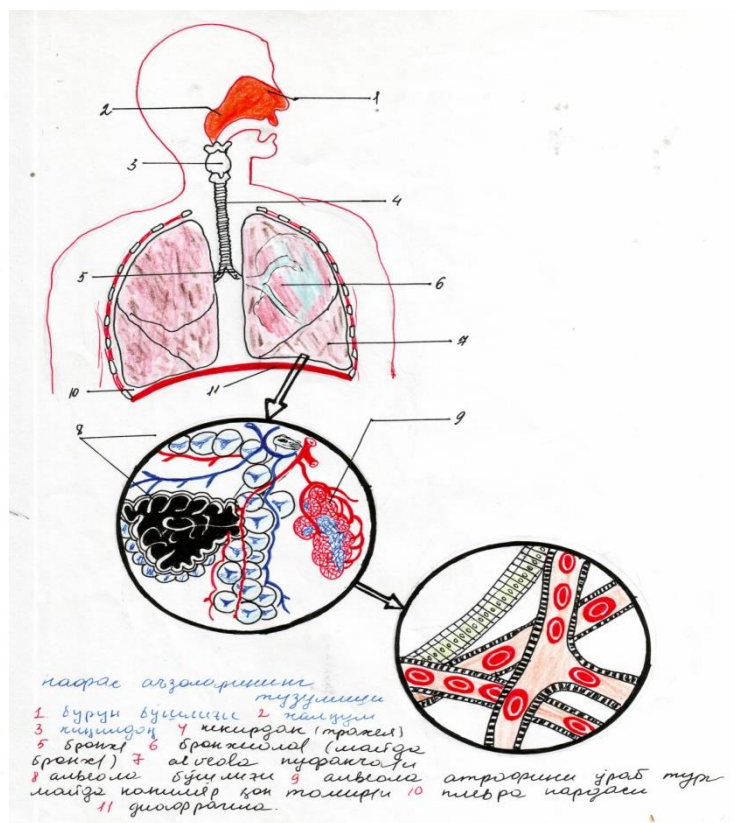 1
2
3
4
5
6
7
10
11
8
9
нафас аъзоларининг
тузулиши
1. бурун бўшлиғи 2 халқум
3 хиқилдоқ 4 кекирдак (трахея)
5 бронх 6 бронхиола (майда
бронх) 7 alveola пуфакчали
8 альвеола бўшлиғи 9 альвеола атрофини ўраб тур
майда капиляр қон томири 10 плевра пардаси
11 диафрагма.